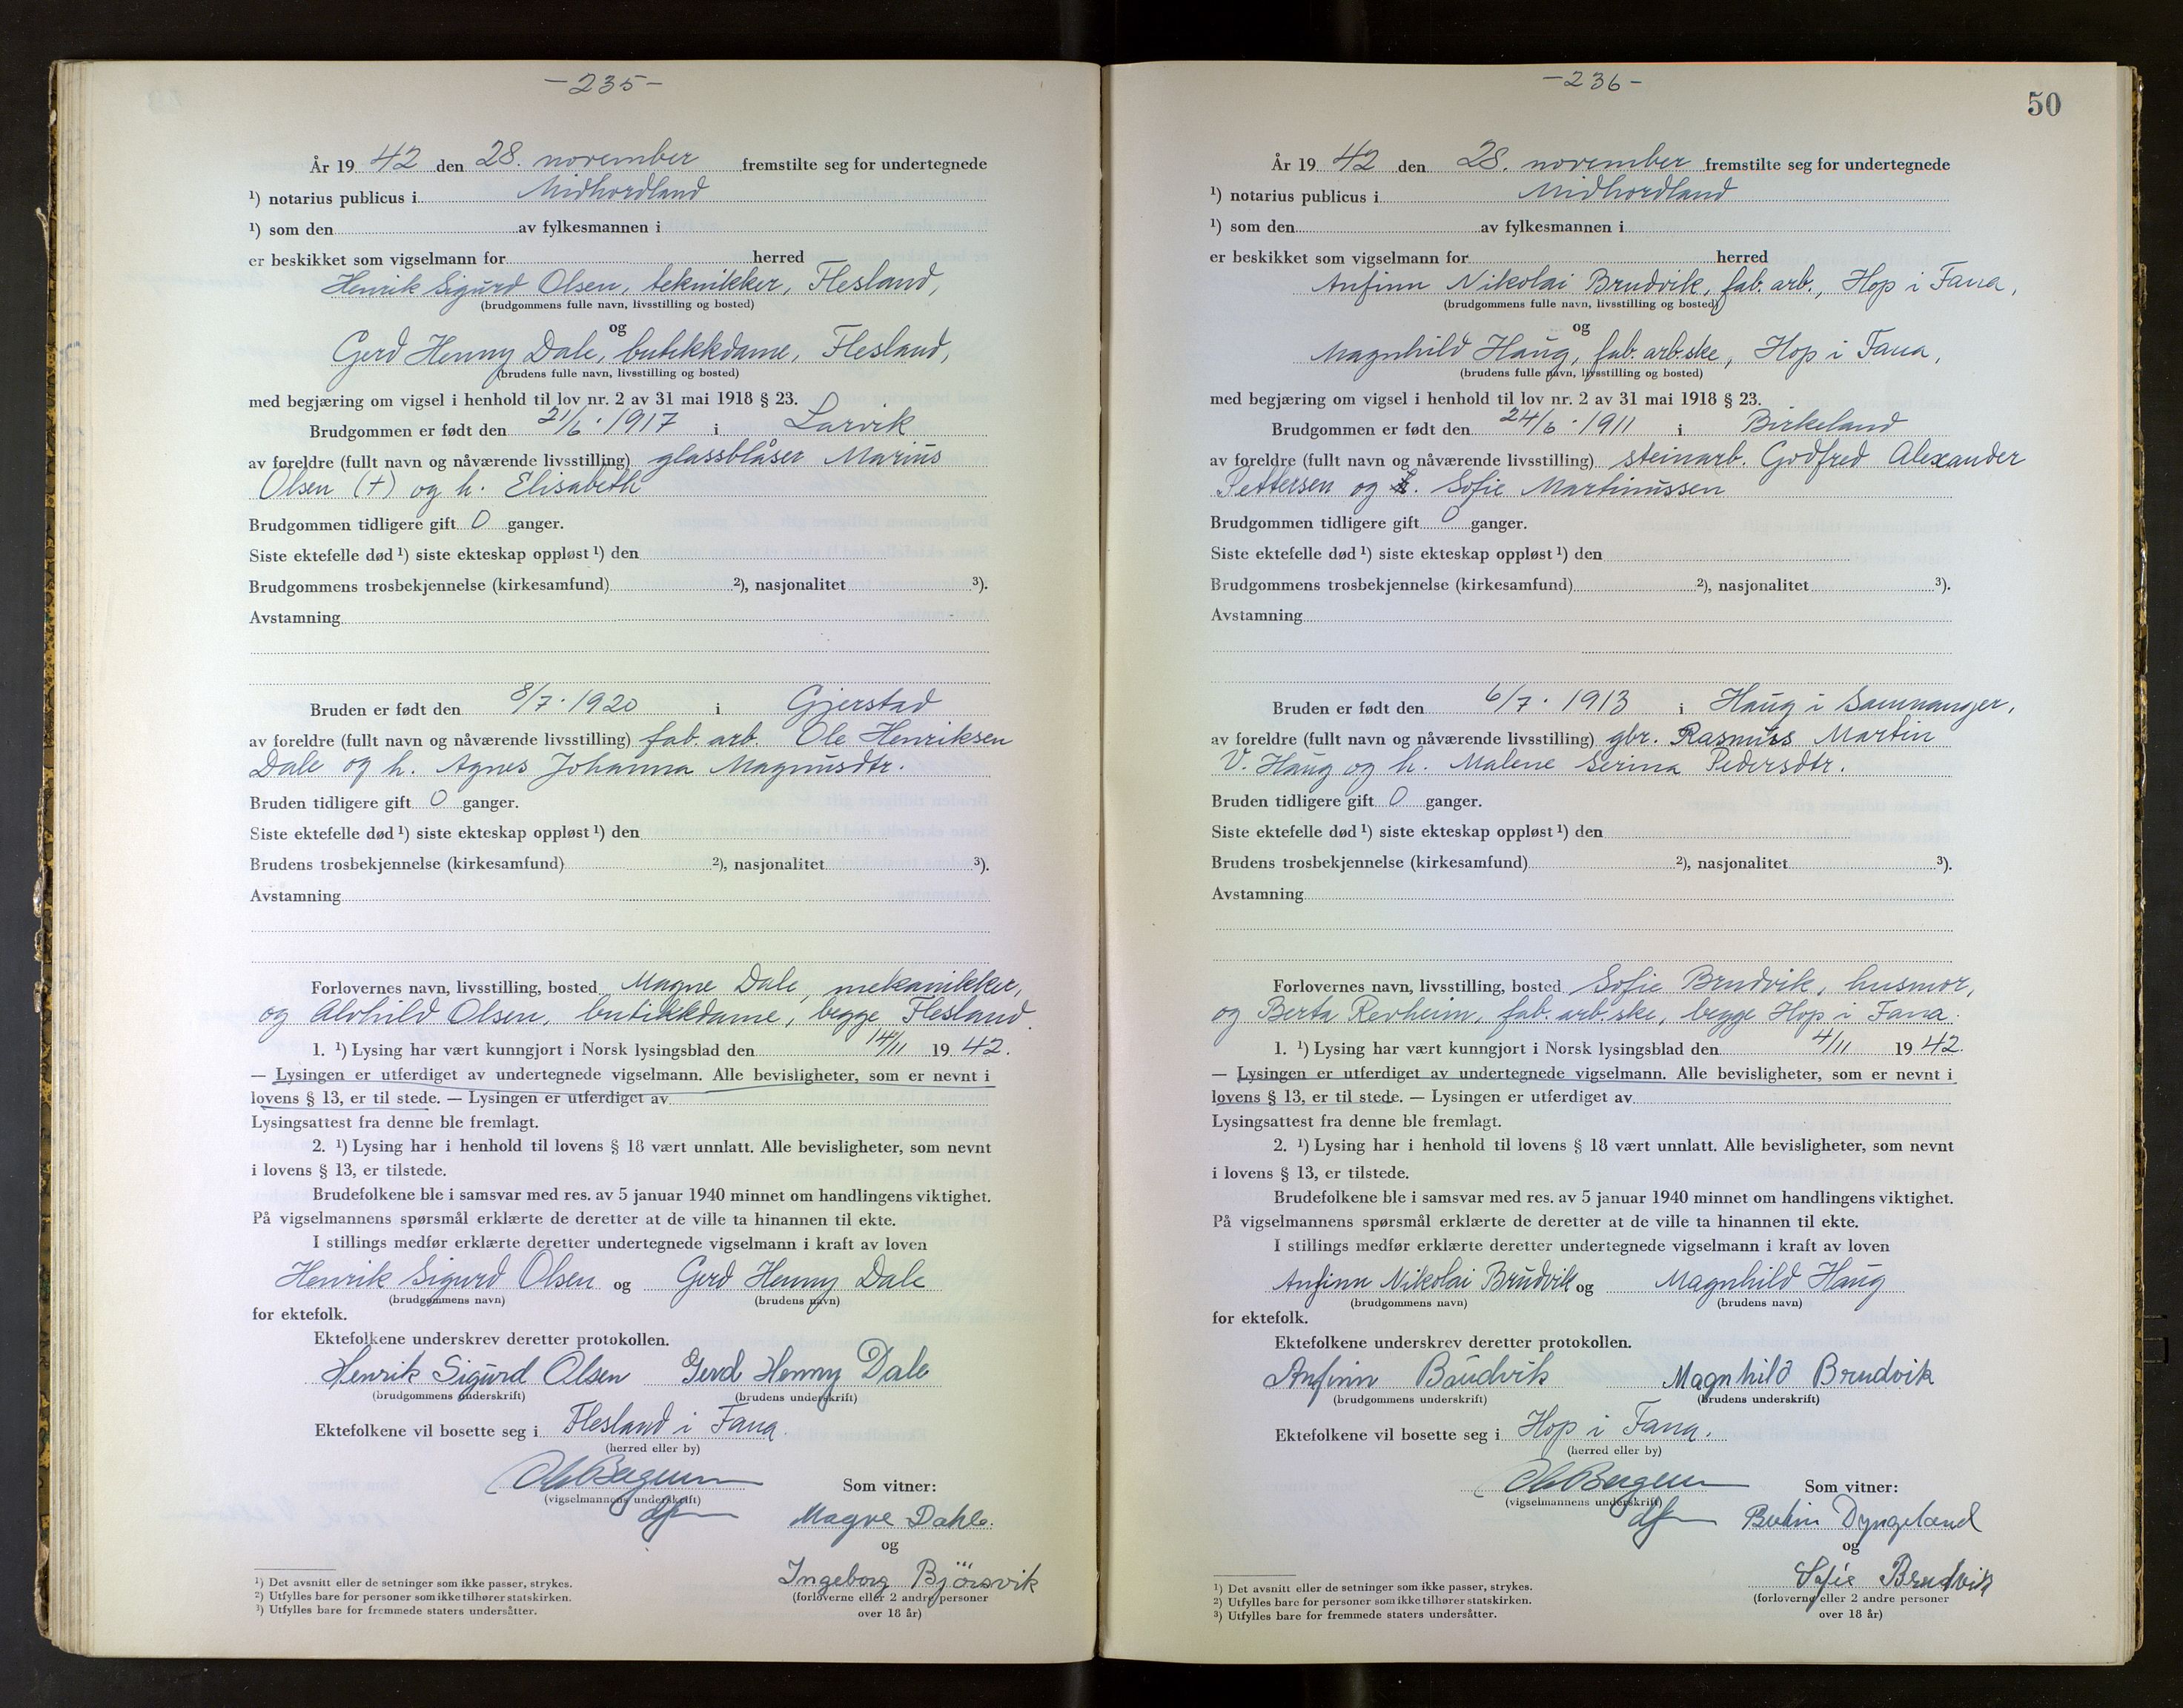 -235-
År 1942 den 28. november fremstilte seg for undertegnede
¹) notarius publicus i Midhordland
¹) som den av fylkesmannen i
er beskikket som vigselmann for herred
Henrik Sigurd Olsen, teknikker, Flesland,
(brudgommens fulle navn, livsstilling og bosted)
og
Gerd Henny Dale, butikkdame, Flesland,
(brudens fulle navn, livsstilling og bosted)
med begjæring om vigsel i henhold til lov nr. 2 av 31 mai 1918 § 23.
Brudgommen er født den 21/6. 1917 i Larvik
av foreldre (fullt navn og nåværende livsstilling) glassblåser Marius
Olsen (+) og h. Elisabeth
Brudgommen tidligere gift 0 ganger.
Siste ektefelle død ¹) siste ekteskap oppløst ¹) den
Brudgommens trosbekjennelse (kirkesamfund) ²), nasjonalitet ³).
Avstamning
Bruden er født den 8/7. 1920 i Gjerstad
av foreldre (fullt navn og nåværende livsstilling) fab. arb. Ole Henriksen
Dale og h. Agnes Johanna Magnusdtr.
Bruden tidligere gift 0 ganger.
Siste ektefelle død ¹) siste ekteskap oppløst ¹) den
Brudens trosbekjennelse (kirkesamfund) ²), nasjonalitet ³).
Avstamning
Forlovernes navn, livsstilling, bosted Magne Dale, mekanikker,
og Alvhild Olsen, butikkdame, begge Flesland.
1. ¹) Lysing har vært kunngjort i Norsk lysingsblad den 14/11 1942.
— Lysingen er utferdiget av undertegnede vigselmann. Alle bevisligheter, som er nevnt i
lovens § 13, er til stede. — Lysingen er utferdiget av
Lysingsattest fra denne ble fremlagt.
2. ¹) Lysing har i henhold til lovens § 18 vært unnlatt. Alle bevisligheter, som nevnt
i lovens § 13, er tilstede.
Brudefolkene ble i samsvar med res. av 5 januar 1940 minnet om handlingens viktighet.
På vigselmannens spørsmål erklærte de deretter at de ville ta hinannen til ekte.
I stillings medfør erklærte deretter undertegnede vigselmann i kraft av loven
Henrik Sigurd Olsen og Gerd Henny Dale
(brudgommens navn) (brudens navn)
for ektefolk.
Ektefolkene underskrev deretter protokollen.
Henrik Sigurd Olsen Gerd Henny Dale
(brudgommens underskrift) (brudens underskrift)
Ektefolkene vil bosette seg i Flesland i Fana.
(herred eller by)
(vigselmannens underskrift)
Som vitner:
Magne Dahle.
og
Ingeborg Bjørsvik
(forloverne eller 2 andre personer
over 18 år)
¹) Det avsnitt eller de setninger som ikke passer, strykes.
²) Utfylles bare for personer som ikke tilhører statskirken.
³) Utfylles bare for fremmede staters undersåtter.
-236-
50
År 1942 den 28. november fremstilte seg for undertegnede
¹) notarius publicus i Midhordland
¹) som den av fylkesmannen i
er beskikket som vigselmann for herred
Anfinn Nikolai Brudvik, fab. arb., Hop i Fana,
(brudgommens fulle navn, livsstilling og bosted)
og
Magnhild Haug, fab. arb.ske, Hop i Fana,
(brudens fulle navn, livsstilling og bosted)
med begjæring om vigsel i henhold til lov nr. 2 av 31 mai 1918 § 23.
Brudgommen er født den 24/6. 1911 i Birkeland
av foreldre (fullt navn og nåværende livsstilling) steinarb. Godfred Alexander
Pettersen og h. Sofie Martinussen
Brudgommen tidligere gift 0 ganger.
Siste ektefelle død ¹) siste ekteskap oppløst ¹) den
Brudgommens trosbekjennelse (kirkesamfund) ²), nasjonalitet ³).
Avstamning
Bruden er født den 6/7. 1913 i Haug i Samnanger,
av foreldre (fullt navn og nåværende livsstilling) gbr. Rasmus Martin
V. Haug og h. Malene Serina Pedersdtr.
Bruden tidligere gift 0 ganger.
Siste ektefelle død ¹) siste ekteskap oppløst ¹) den
Brudens trosbekjennelse (kirkesamfund) ²), nasjonalitet ³).
Avstamning
Forlovernes navn, livsstilling, bosted Sofie Brudvik, husmor,
og Berta Revheim, fab. arb.ske, begge Hop i Fana.
1. ¹) Lysing har vært kunngjort i Norsk lysingsblad den 4/11 1942.
— Lysingen er utferdiget av undertegnede vigselmann. Alle bevisligheter, som er nevnt i
lovens § 13, er til stede. — Lysingen er utferdiget av
Lysingsattest fra denne ble fremlagt.
2. ¹) Lysing har i henhold til lovens § 18 vært unnlatt. Alle bevisligheter, som nevnt
i lovens § 13, er tilstede.
Brudefolkene ble i samsvar med res. av 5 januar 1940 minnet om handlingens viktighet.
På vigselmannens spørsmål erklærte de deretter at de ville ta hinannen til ekte.
I stillings medfør erklærte deretter undertegnede vigselmann i kraft av loven
Anfinn Nikolai Brudvik og Magnhild Haug
(brudgommens navn) (brudens navn)
for ektefolk.
Ektefolkene underskrev deretter protokollen.
Anfinn Brudvik Magnhild Brudvik
(brudgommens underskrift) (brudens underskrift)
Ektefolkene vil bosette seg i Hop i Fana.
(herred eller by)
(vigselmannens underskrift)
Som vitner:
Dyngeland
og
Sofie Brudvik
(forloverne eller 2 andre personer
over 18 år)
¹) Det avsnitt eller de setninger som ikke passer, strykes.
²) Utfylles bare for personer som ikke tilhører statskirken.
³) Utfylles bare for fremmede staters undersåtter.